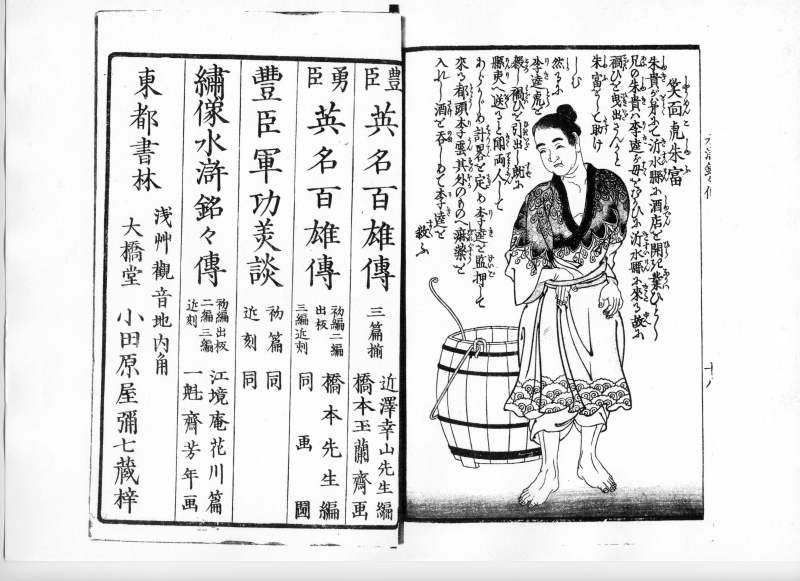 笑面虎朱富
朱貴が弟にて沂水縣に酒店を開き業ひとし
兄の朱貴ハ李逵が母をむかひに沂水縣に來る故に
禍ひを曳出さん人かと
朱富をして助け
しむ
然るに
李逵虎を
殺し禍ひを引出し既に
縣東へ送ると聞両人して
あらかじめ計畧を定め李逵を監押して
來る都頭李雲其外のものへ痲藥を
入れし酒を呑しめて李逵を
救ふ
十八
豊臣 英名百雄傳 三篇揃 近澤幸山先生編 橋本玉蘭齊画
勇臣 英名百雄傳 初編二編出板 三編近刻 橋本先生編 同画圖
豐臣軍功美談 初篇近刻 同同
繡像水滸銘々傳 初編出板 二編三編近刻 江境庵花川篇 一魁齊芳年画
東都書林 浅艸觀音地内角 大橋堂 小田原屋彌七藏梓